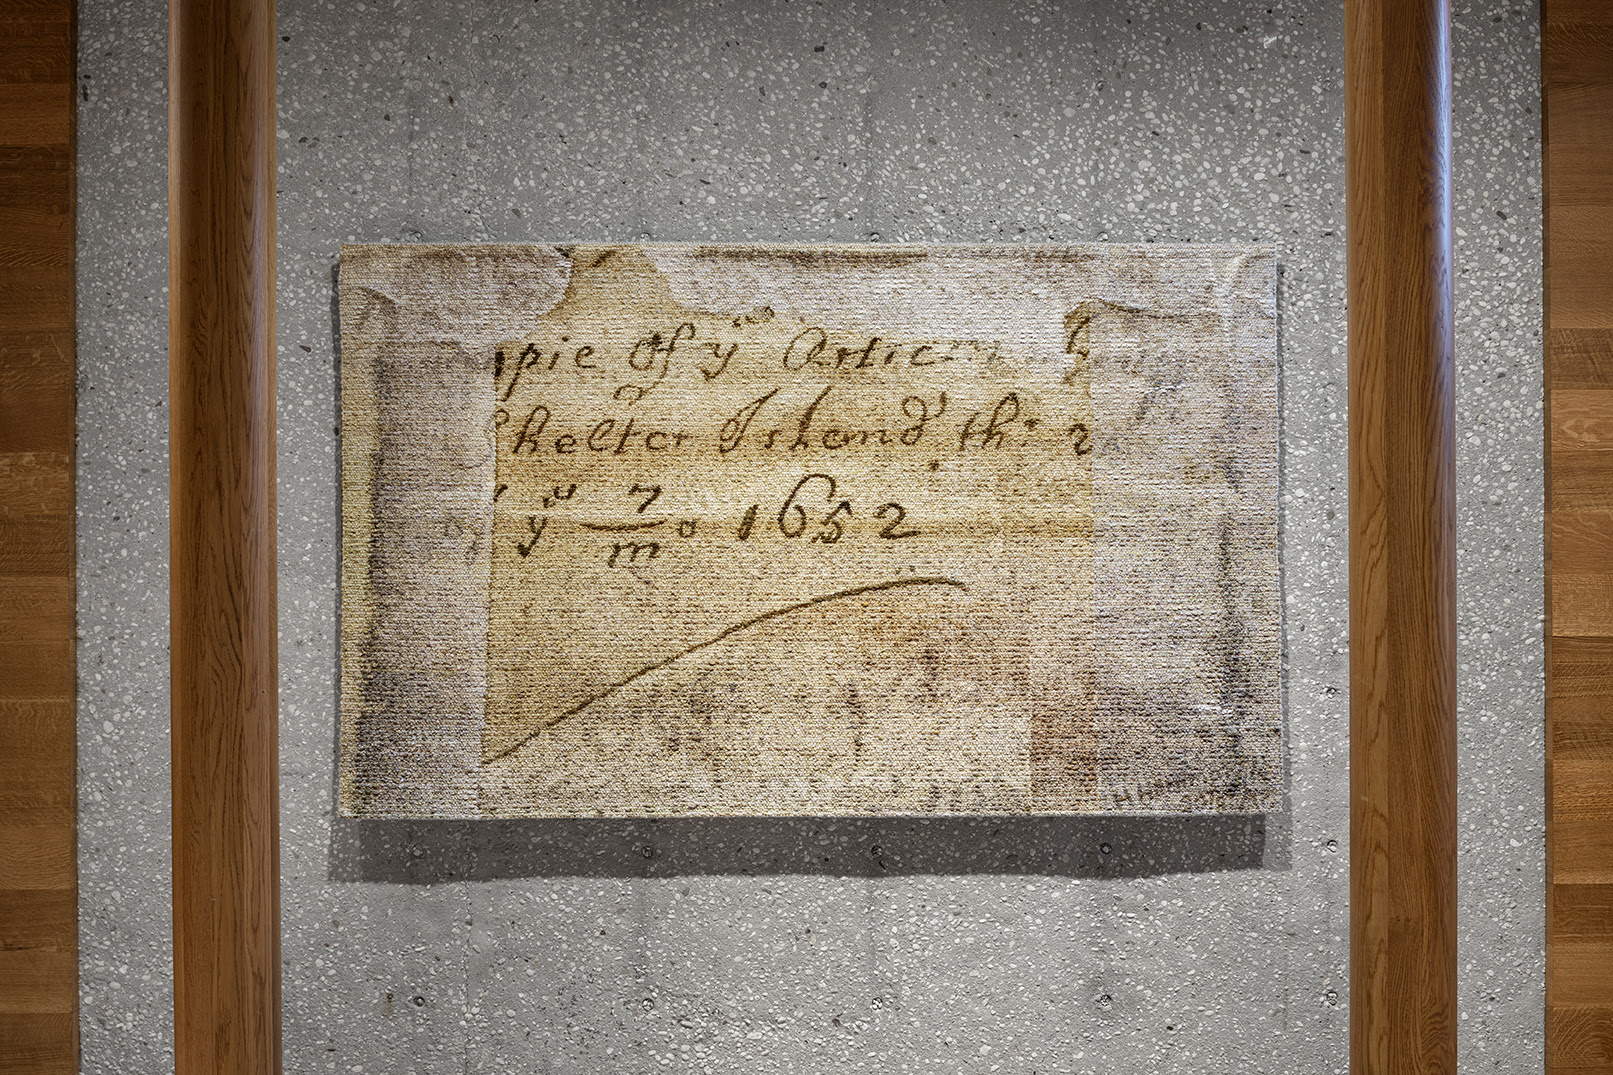 pie Of yᵉ Artic
helter Island th
yᵉ 7/m o 1652